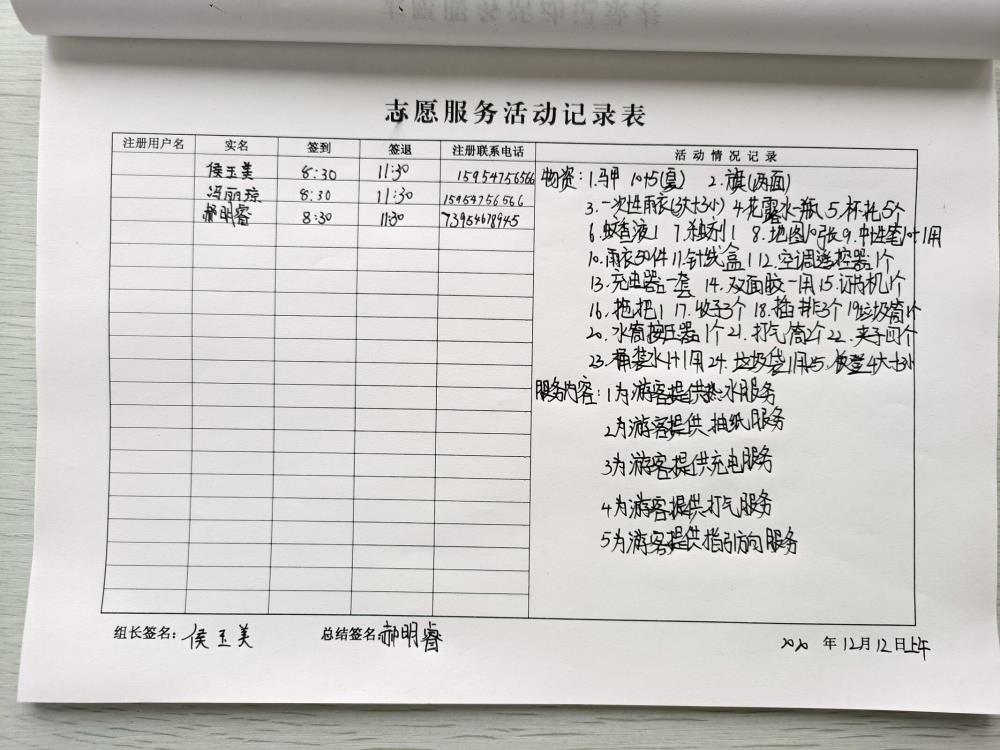 志愿服务活动记录表
注册用户名 实名 签到 签退 注册联系电话 活动情况记录
侯玉美 8:30 11:30 15954756566
冯丽琼 8:30 11:30 15954756566
郝明睿 8:30 11:30 73954678945
物资:1.马甲10+15(夏) 2.旗(两面)
3.一次性雨衣(3大+3小) 4.花露水一瓶 5.杯托5个
6.蚊香液1 7. 8.地图10张 9.中性笔10+1用
10.雨衣50件 11.针线盒1 12.空调遥控器1个
13.充电器一套 14.双面胶一用 15.订书机1个
16.拖把1 17. 3个 18.插排3个 19垃圾筒1个
20.水筒按压器1个 21.打气筒2个 22.夹子四个
23.桶装水1+1用 24.垃圾袋1用 25.板凳4大+3小
服务内容:1为游客提供热水服务
2为游客提供抽纸服务
3为游客提供充电服务
4为游客提供打气服务
5为游客提供指引方向服务
组长签名:侯玉美 总结签名 郝明睿 2020年12月12日上午